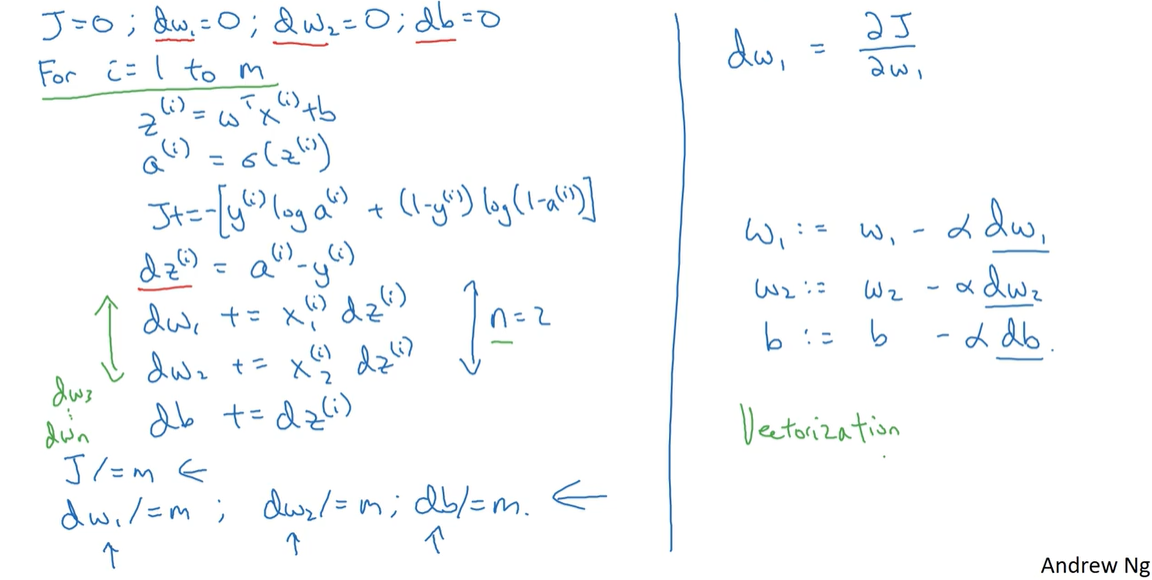 J=0 ; dw₁=0 ; dw₂=0 ; db=0
For i=1 to m
z⁽ⁱ⁾ = ωᵀx⁽ⁱ⁾+b
a⁽ⁱ⁾ = σ(z⁽ⁱ⁾)
J+=-[y⁽ⁱ⁾ log a⁽ⁱ⁾ + (1-y⁽ⁱ⁾) log(1-a⁽ⁱ⁾)]
dz⁽ⁱ⁾ = a⁽ⁱ⁾-y⁽ⁱ⁾
dw₁ += x₁⁽ⁱ⁾ dz⁽ⁱ⁾
dw₂ += x₂⁽ⁱ⁾ dz⁽ⁱ⁾
n=2
db += dz⁽ⁱ⁾
dw₃
⋮
dwₙ
J/=m ←
dw₁/=m ; dw₂/=m ; db/=m. ←
↑ ↑ ↑
dw₁ = ∂J/∂w₁
w₁ := w₁ - α dw₁
w₂ := w₂ - α dw₂
b := b - α db.
Vectorization
Andrew Ng